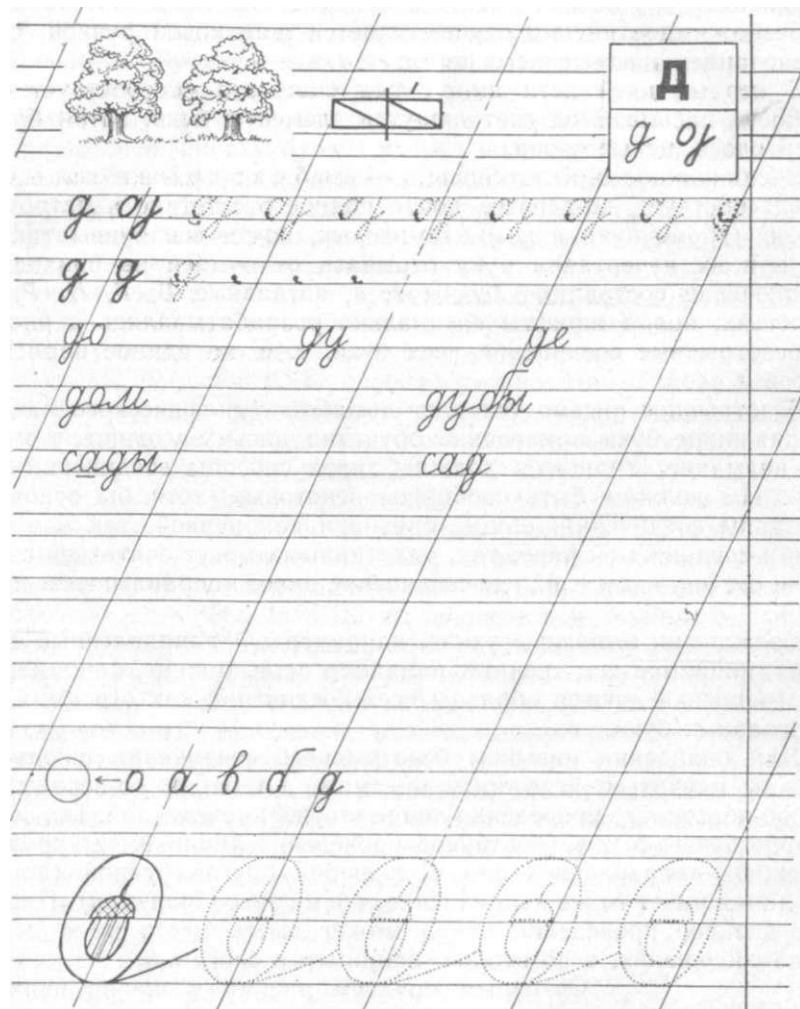 Д
д ду
д ду
д д
до ду де
дом дубы
сады сад
о а в б д